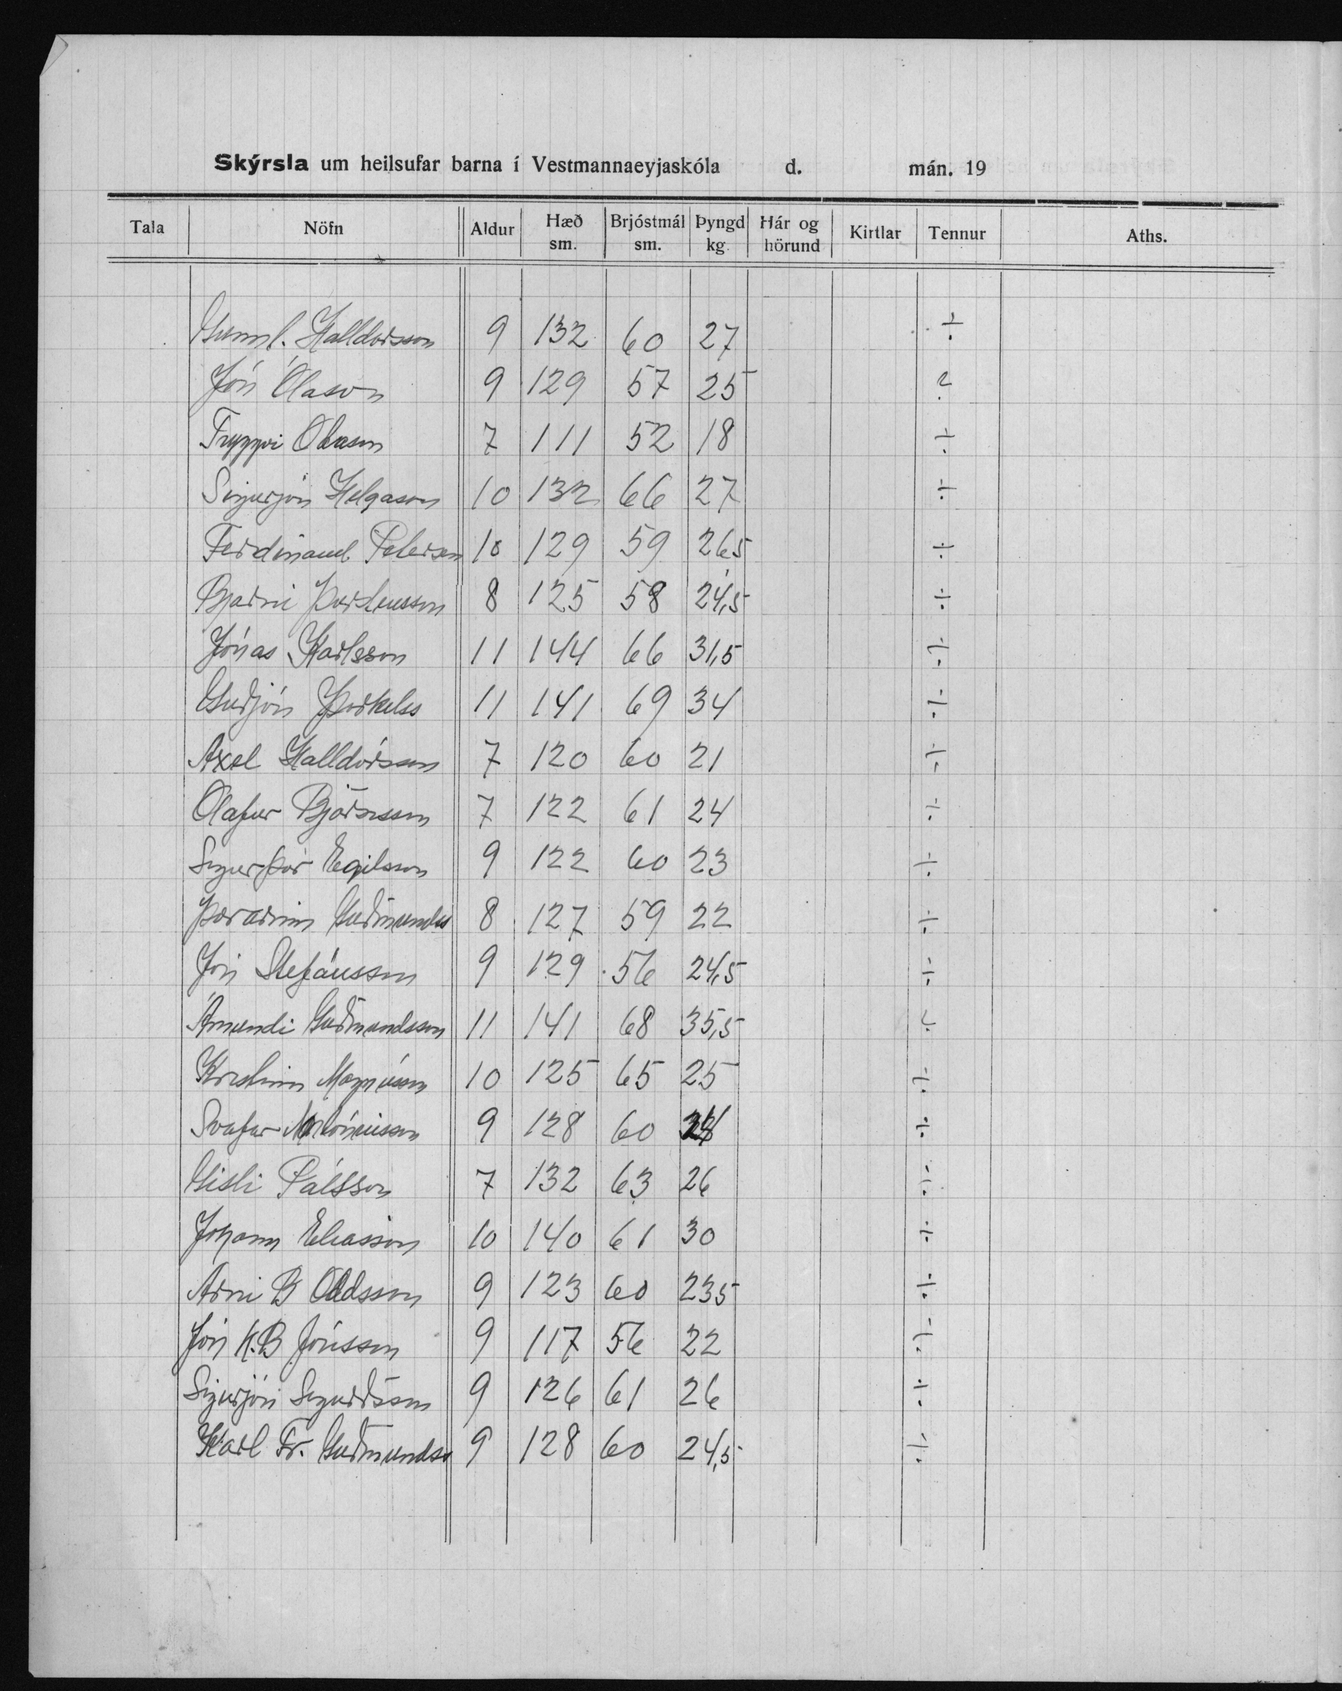 Skýrsla um heilsufar barna í Vestmannaeyjaskóla d. mán. 19
Tala Nöfn Aldur Hæð sm. Brjóstmál sm. Þyngd kg. Hár og hörund Kirtlar Tennur Aths.
Gunnl. Halldorsson 9 132 60 27 ÷
Jón Ólason 9 129 57 25 ?
Tryggvi Olason 7 111 52 18 ÷
Sigurjón Helgason 10 132 66 27 ÷
Ferdinand Petersen 10 129 59 26,5 ÷
Bjarni Þorsteinsson 8 125 58 24,5 ÷
Jónas Karlsson 11 144 66 31,5 ÷
Guðjón Þorkelss 11 141 69 34 ÷
Axel Halldórsson 7 120 60 21 ÷
Ólafur Björnsson 7 122 61 24 ÷
Sigurþór Egilsson 9 122 60 23 ÷
Þorarinn Guðmundss 8 127 59 22 ÷
Jón Stefánsson 9 129 56 24,5 ÷
Ámundi Guðmundsson 11 141 68 35,5 ?
Kristinn Magnússon 10 125 65 25 ÷
Svafar Antóniusson 9 128 60 ÷
Gisli Pálsson 7 132 63 26 ÷
Johann Eliasson 10 140 61 30 ÷
Arni B Oddsson 9 123 60 23 5 ÷
Jón K. B Jónsson 9 117 56 22 ÷
Sigurjón Sigurðsson 9 126 61 26 ÷
Karl Fr. Guðmundss 9 128 60 24,5 ÷